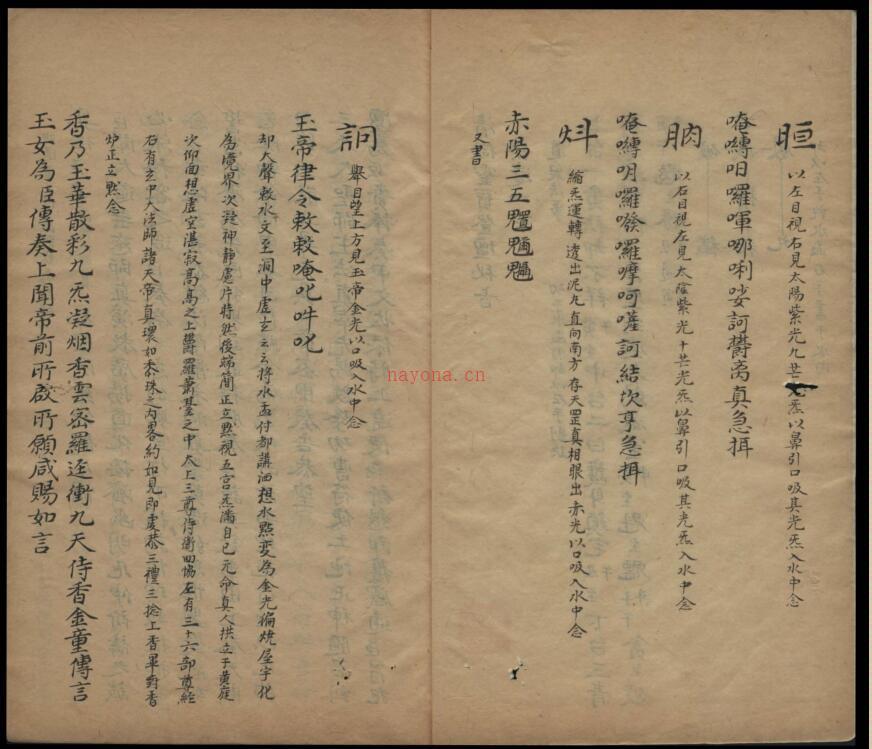 晅 以左目視右見太陽紫光九芒炁以鼻引口吸其光炁入水中念
唵嚩囉㖇哪唎娑訶欝离真急揖
朒 以右目視左見太陰紫光十芒光炁以鼻引口吸其光炁入水中念
唵嚩囉癹囉摩呵訶結坎亨急揖
炓 綸炁運轉透出泥丸直向南方存天罡真相眼出赤光以口吸入水中念
赤陽三五
又書
詗 舉目望上方見玉帝金光以口吸入水中念
玉帝律令敕敕唵叱吽叱
却大聲敕水文至澗中虛玄云云將水盂付都講洒想水點変為金光徧燒屋宇化
為境界次凝神靜慮片時然後端簡正立黙視五宮炁滿自己元命真人拱立于黄庭
次仰面想虛空湛寂高髙之上欝羅蕭臺之中太上三尊侍衛四協左有三十六部尊經
右有玄中大法師諸天帝真環如黍珠之内畧約如見即虔恭三禮三捻上香畢爵香
炉正立黙念
香乃玉華散彩九炁凝烟香雲宻羅逕衝九天侍香金童傳言
玉女為臣傳奏上聞帝前所啟所願咸賜如言
nayona.cn